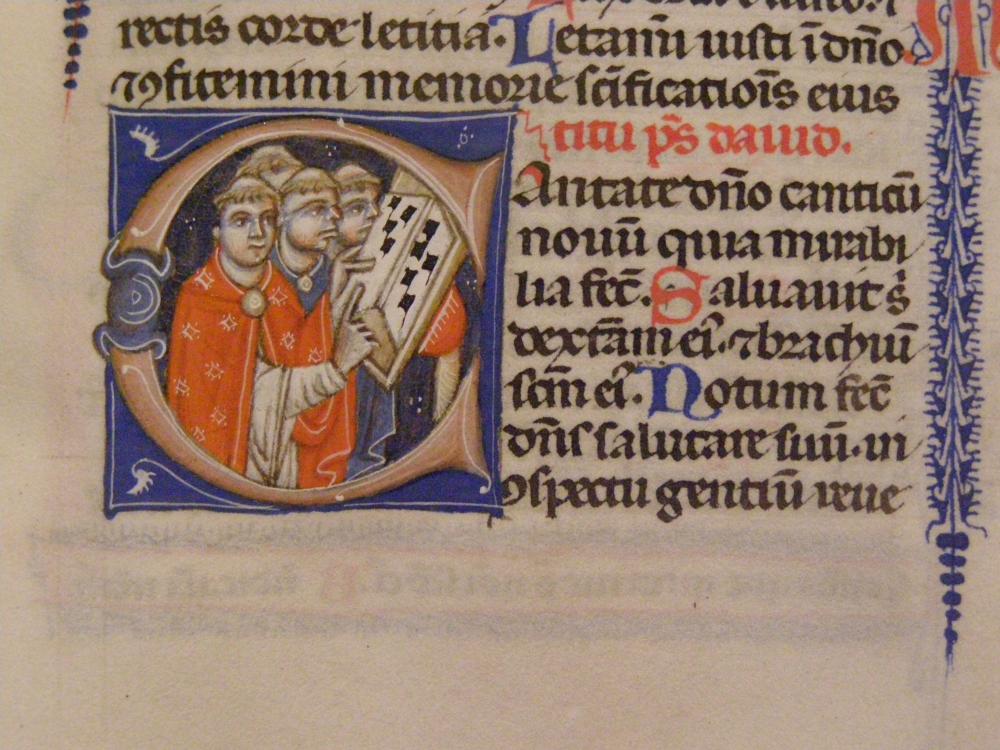 rectis corde letitia. Letamĩ iusti ĩ dño
ꝯfitemini memorie scĩficatiõis eius
titu ps̃ dauid.
Cantate dño canticũ
nouũ quia mirabi
lia fec̃. Saluauit s
dext̃am eiꝰ ⁊ brachiũ
scm̃ eiꝰ. Notum fec̃
dñs salutare suũ in
ꝯspectu gentiũ reue